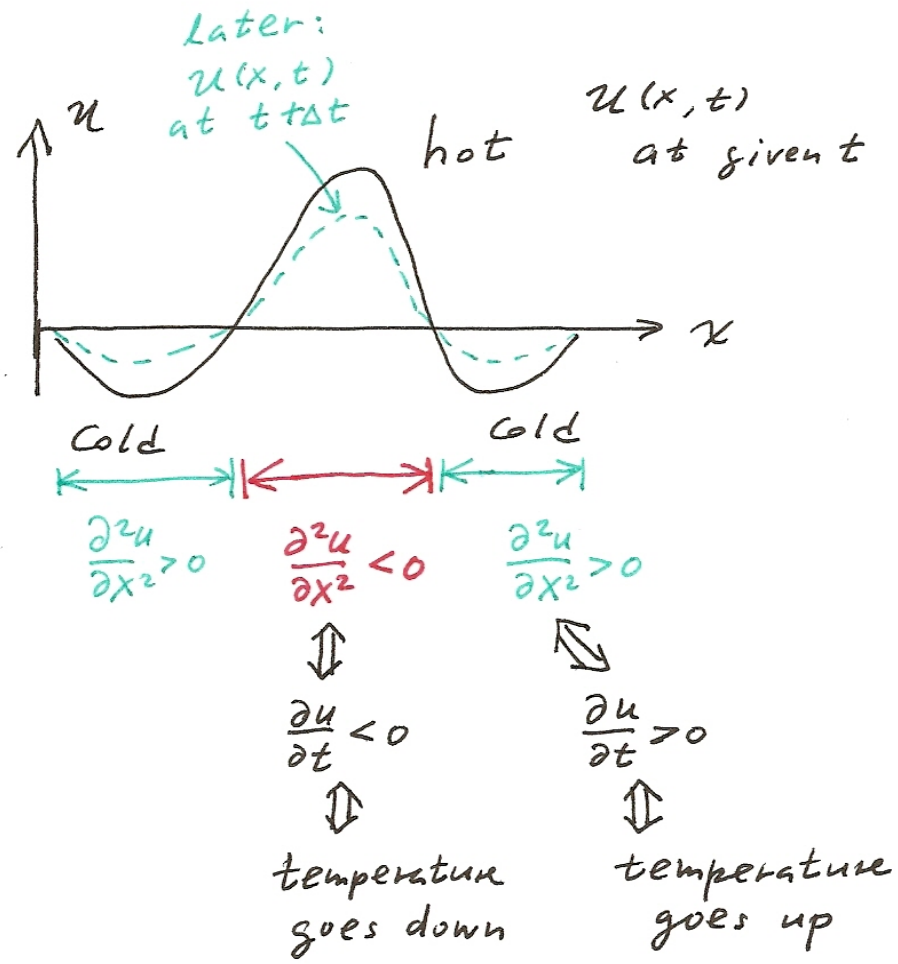 later:
u(x,t)
at t+Δt
u
hot
u(x,t)
at given t
x
Cold
Cold
∂²u/∂x² > 0
∂²u/∂x² < 0
∂²u/∂x² > 0
⇕
⇕
∂u/∂t < 0
∂u/∂t > 0
⇕
⇕
temperature
goes down
temperature
goes up